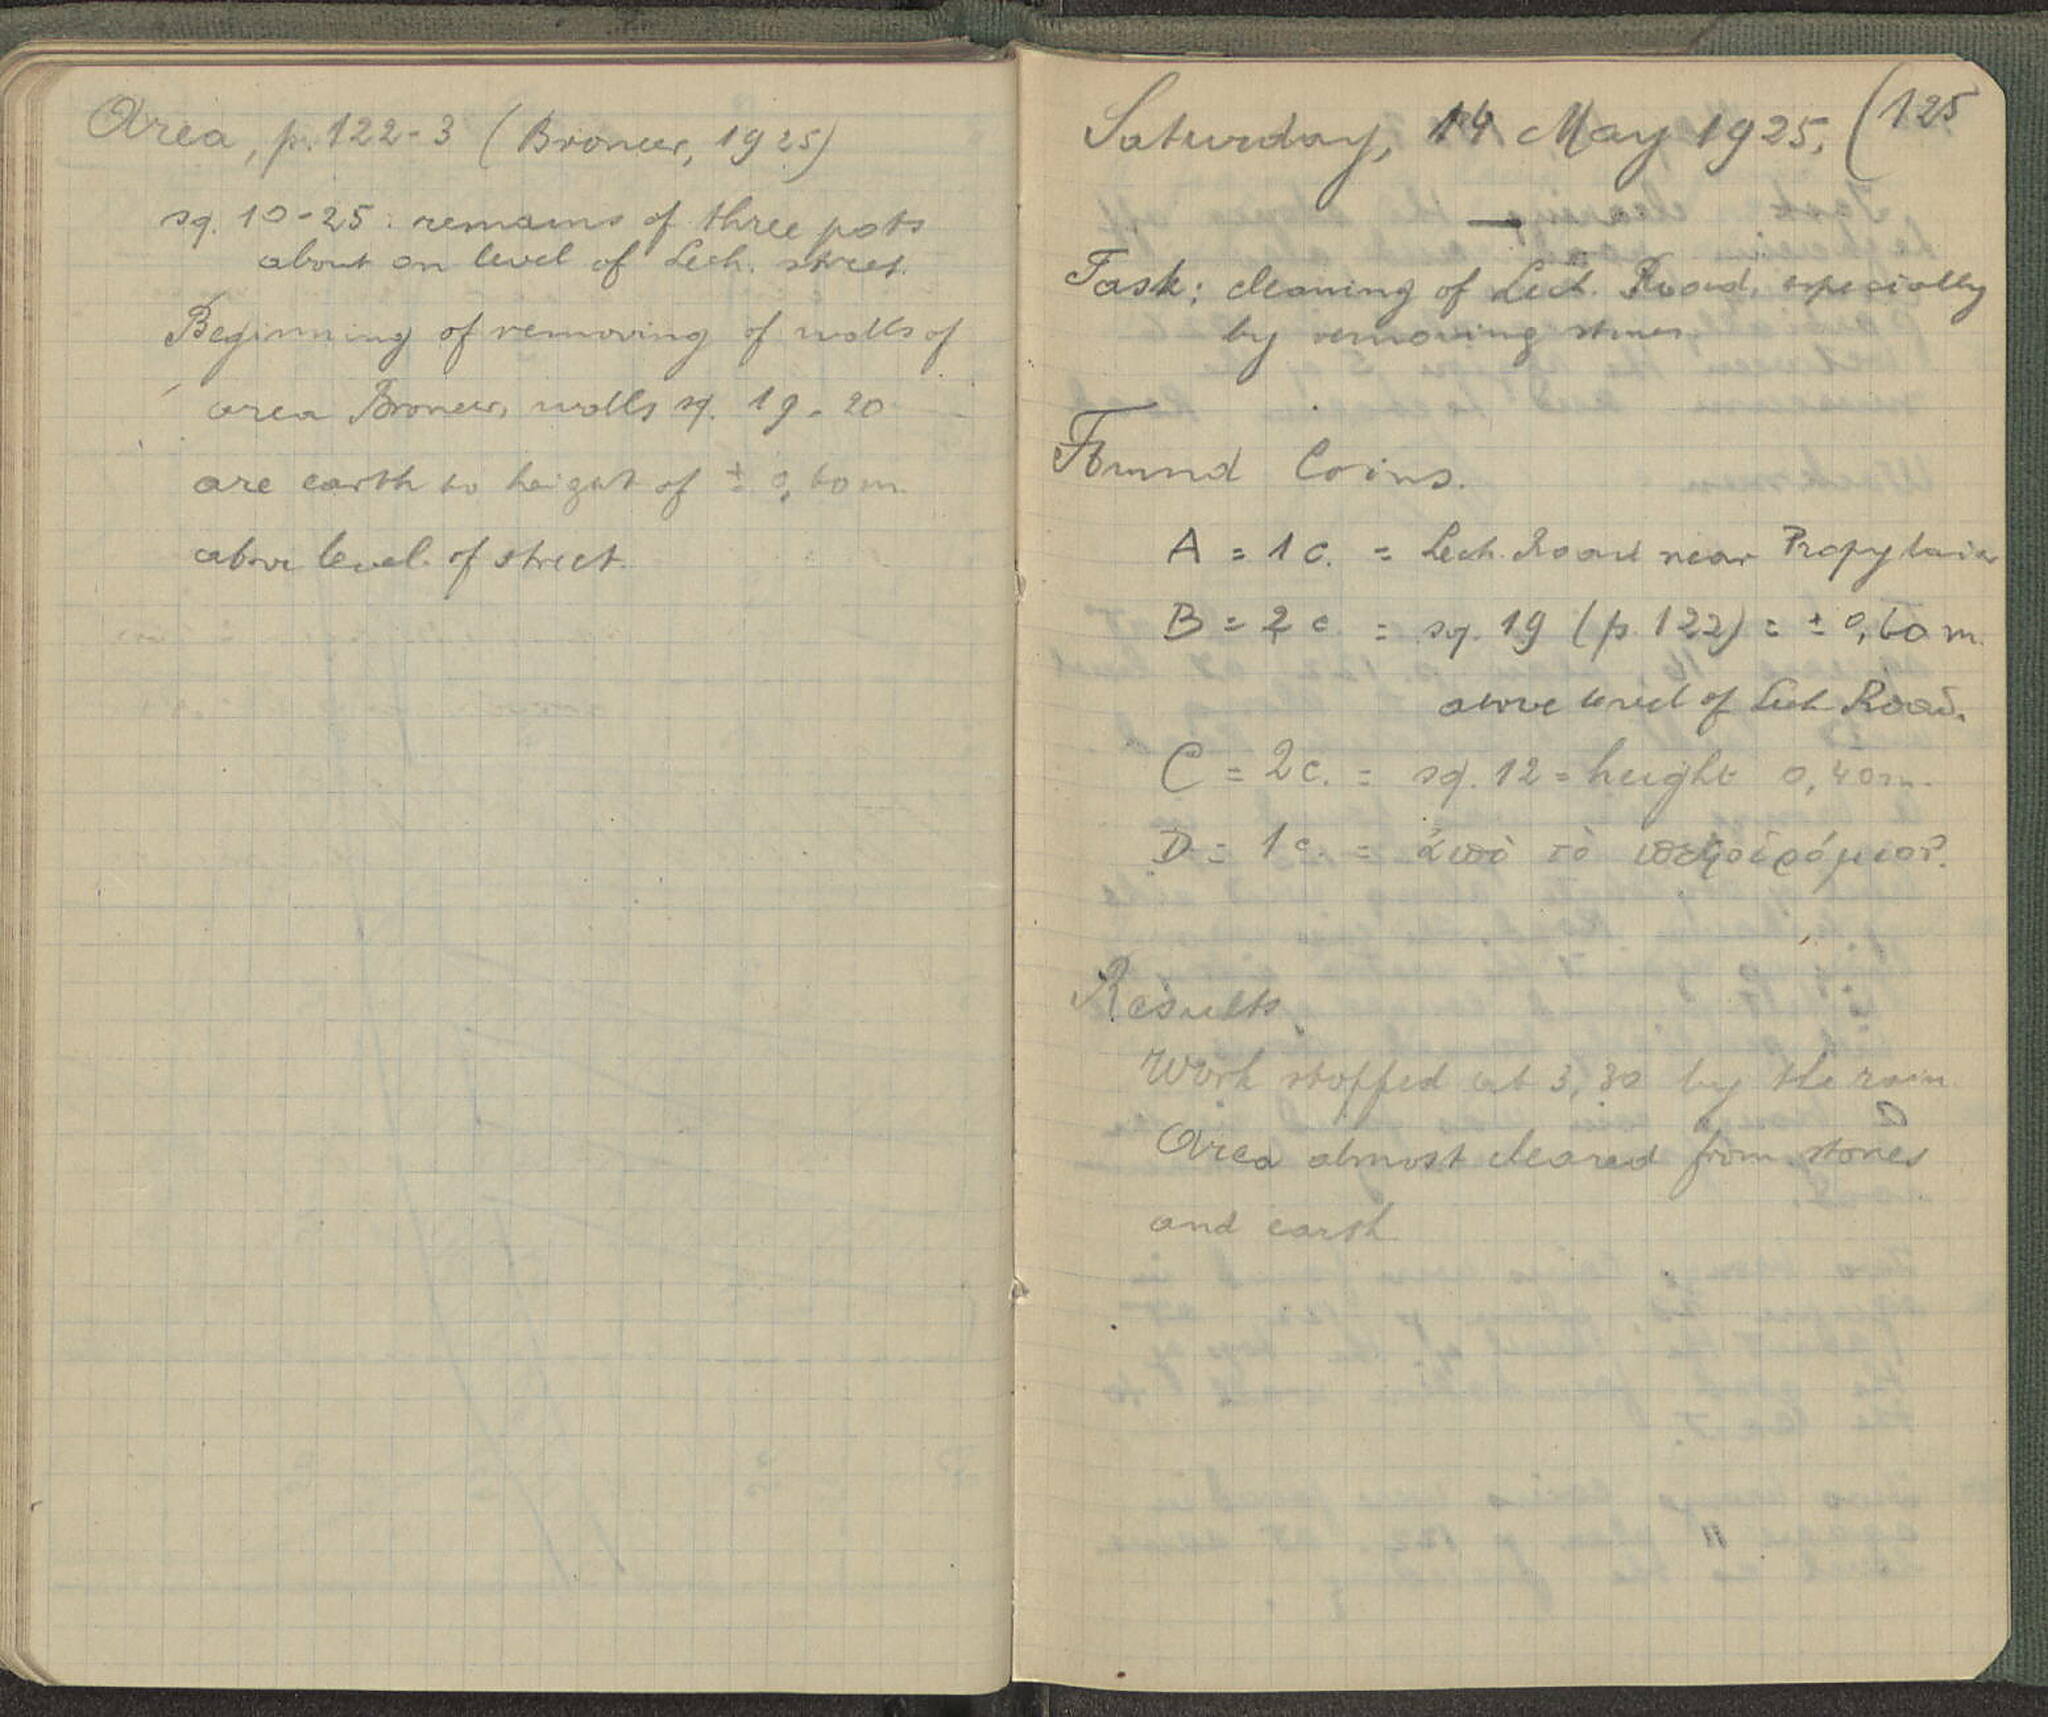 Area, p. 122-3 (Broneer, 1925)
sq. 10-25: remains of three pots
about on level of Lech. street.
Beginning of removing of walls of
area Broneer, walls sq. 19-20
are earth to height of ± 0,60 m.
above level of street.
Saturday, 14 May 1925. (125
Task: cleaning of Lech. Road, especially
by removing stones
Found Coins.
A = 1 c. = Lech. Road near Propylaia
B = 2 c. = sq. 19 (p. 122) = ± 0,60 m.
above level of Lech Road.
C = 2 c. = sq. 12 = height 0,40 m.
D = 1 c. = ἀπὸ τὸ
Results
Work stopped at 3,30 by the rain
Area almost cleared from stones
and earth